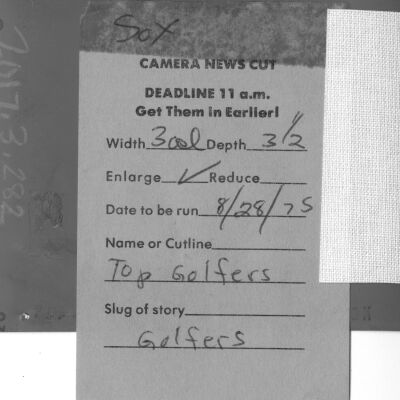 Sox
CAMERA NEWS CUT
DEADLINE 11 a.m.
Get Them in Earlier!
Width 3 col Depth 3 1/2"
Enlarge ✓ Reduce
Date to be run 8/28/75
Name or Cutline
Top Golfers
Slug of story
Golfers
2017.3.282